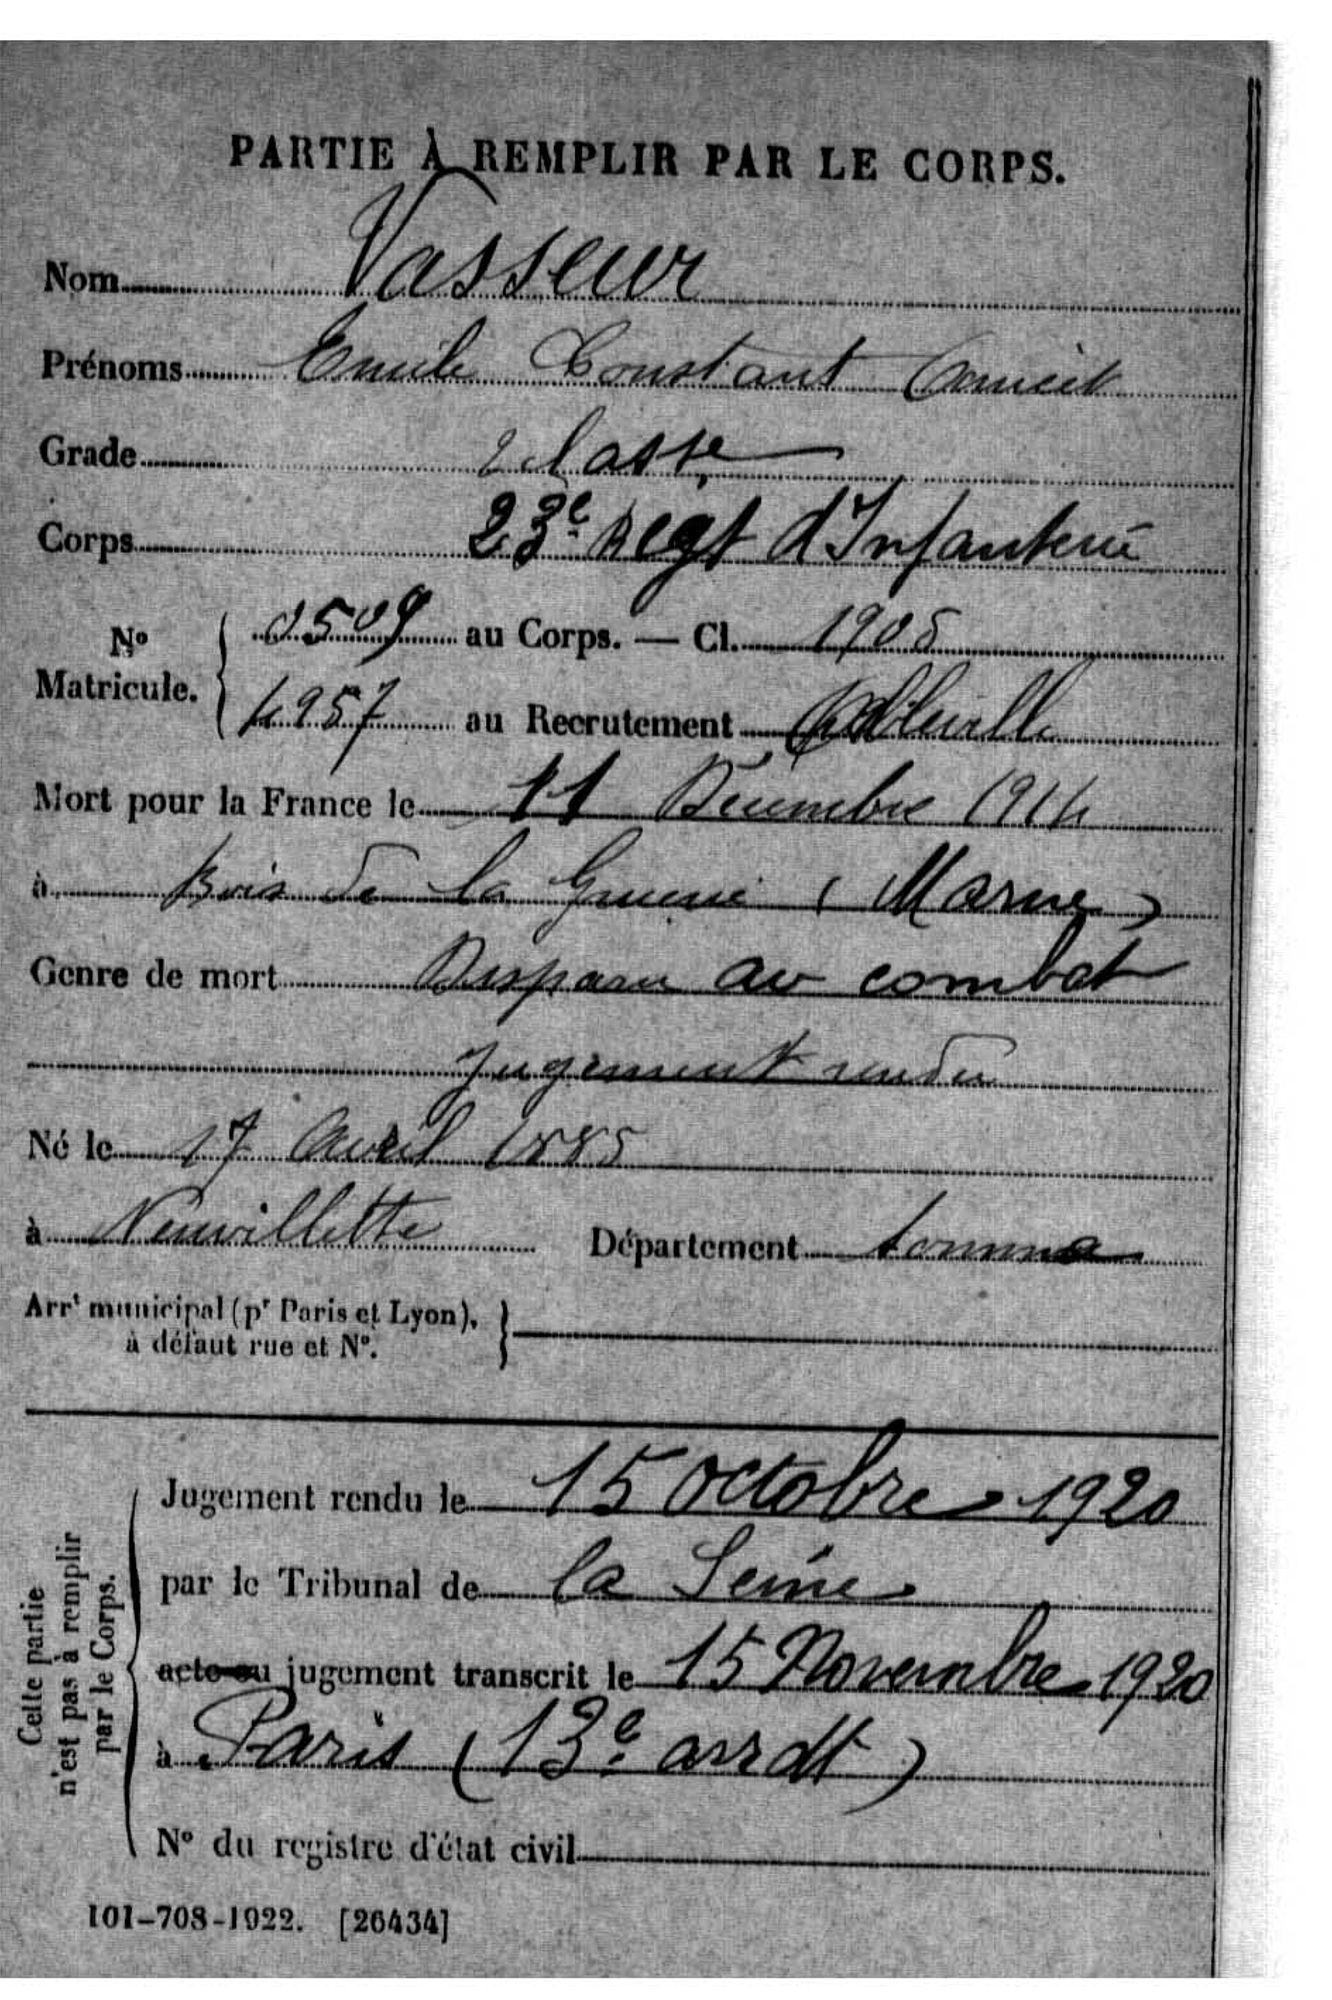 PARTIE À REMPLIR PAR LE CORPS.
Nom Vasseur
Prénoms Emile Constant
Grade 2 classe
Corps 23e Regt d'Infanterie
No Matricule. 0509 au Corps. — Cl. 1905
1957 au Recrutement Abbeville
Mort pour la France le 11 Décembre 1914
à Bois de la Grurie (Marne)
Genre de mort Disparu au combat
Jugement rendu
Né le 17 Avril 1885
à Neuvillette Département Somme
Arrt municipal (pr Paris et Lyon),
à défaut rue et No.
Cette partie
n'est pas à remplir
par le Corps.
Jugement rendu le 15 Octobre 1920
par le Tribunal de la Seine
acte ou jugement transcrit le 15 Novembre 1920
à Paris (13e arrdt)
No du registre d'état civil
101-708-1922. [26434]